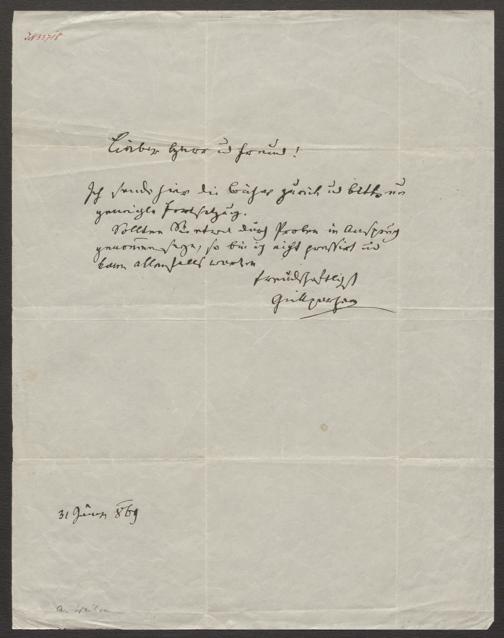 Lieber Herr und Freund!
Ich sende hier die Bücher zurück und bitte um
geneigte Fortsetzung.
Sollten Sie etwa durch Proben in Anspruch
genommen seyn, so bin ich nicht pressirt und
kann allenfalls warten
freundschaftlichst
Grillparzer
31 Jänner 869